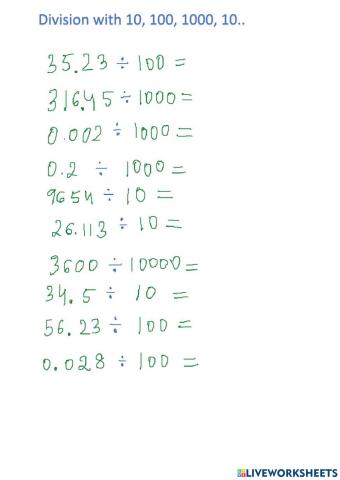 Division with 10, 100, 1000, 10..
35.23 ÷ 100 =
316.45 ÷ 1000 =
0.002 ÷ 1000 =
0.2 ÷ 1000 =
9654 ÷ 10 =
26.113 ÷ 10 =
3600 ÷ 10000 =
34.5 ÷ 10 =
56.23 ÷ 100 =
0.028 ÷ 100 =
LIVEWORKSHEETS